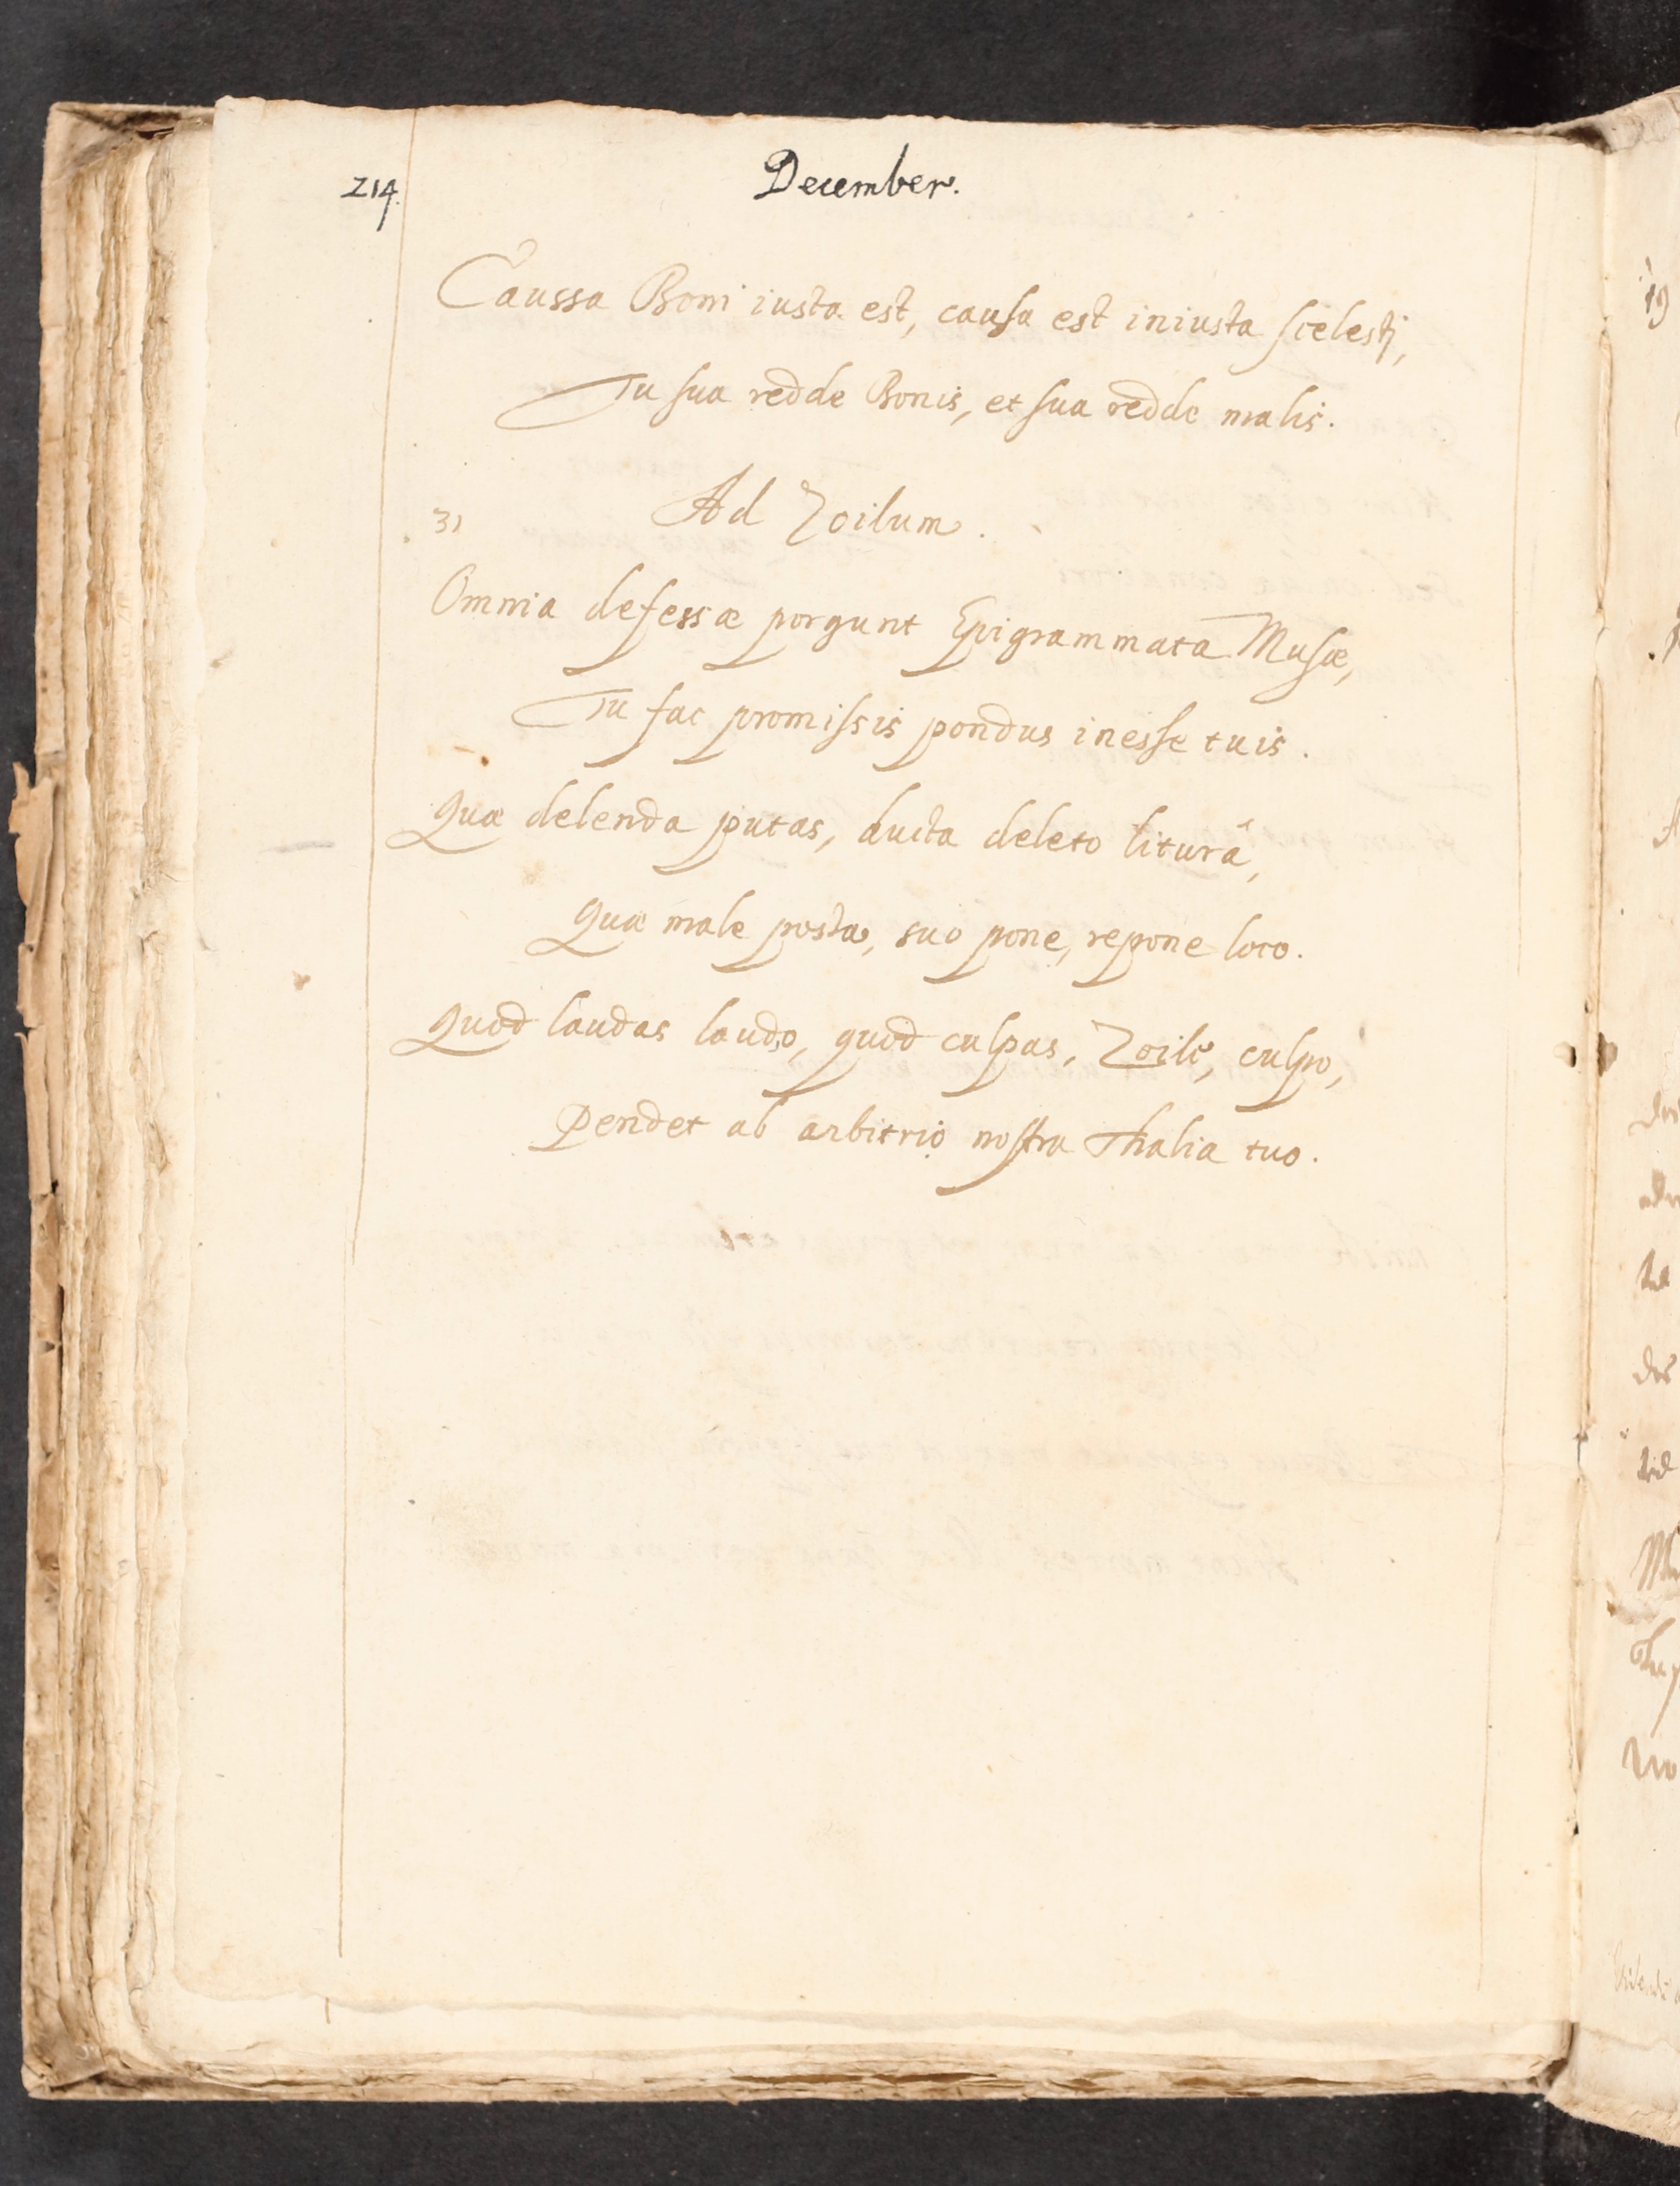 214.
December.
Caussa Boni iusta est, causa est iniusta scelesti,
Tu sua redde Bonis, et sua redde malis.
31
Ad Zoilum.
Omnia defessæ pergunt Epigrammata Musæ,
Tu fac promissis pondus inesse tuis.
Quæ delenda putas, ducta deleto liturâ,
Quæ male posta, suo pone, repone loco.
Quod laudas laudo, quod culpas, Zoile, culpo,
Pendet ab arbitrio nostra Thalia tuo.